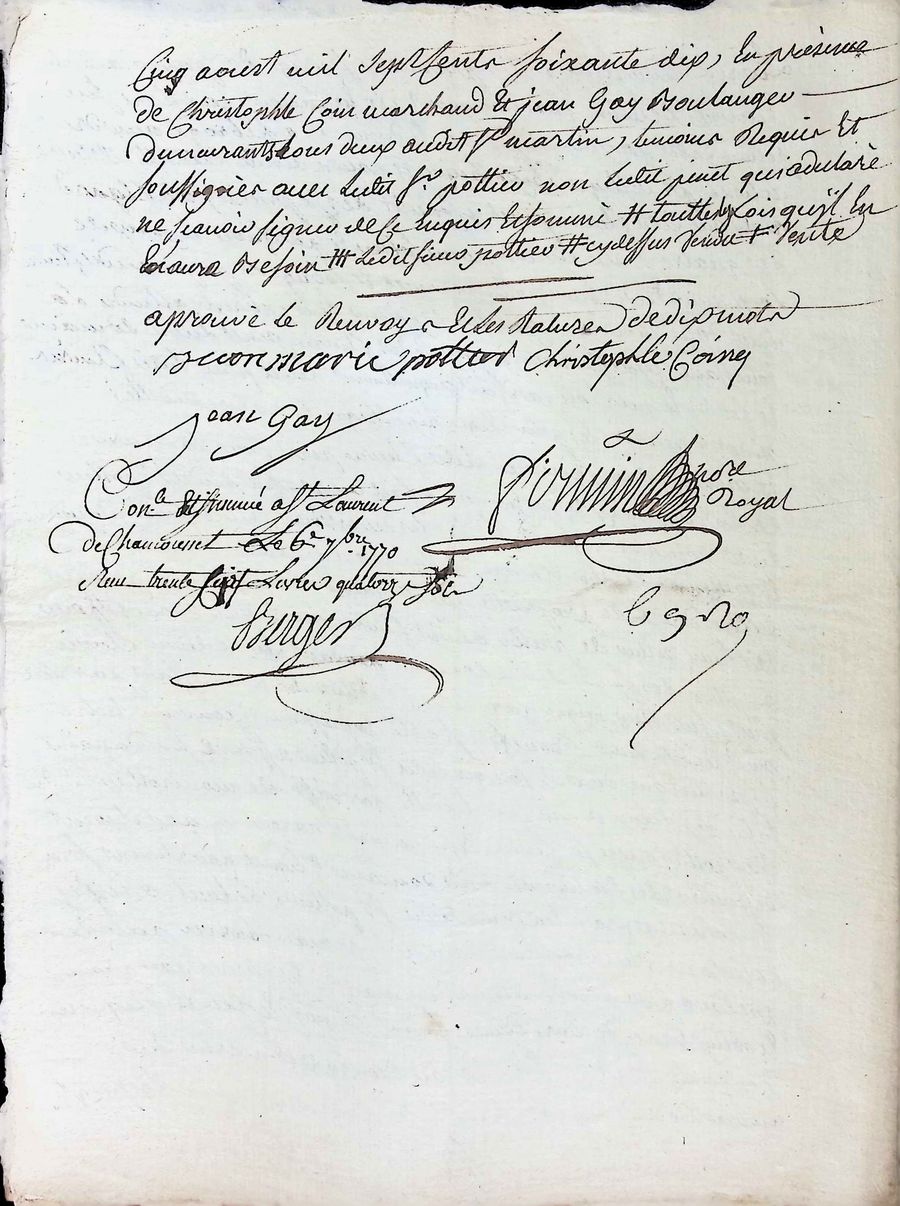 Cinq aoust mil Sept Cents soixante dix, En présence
de Christophle Coin marchand Et jean Gay Boulanger
demeurants tous deux audit St martin, temoins Requis Et
soussignés avec Ledit Sr pottier non Ledit pinet qui a declaré
ne scavoir signer de ce Enquis Et sommé # touttes Lois qu'jl En
En aura Besoin ## Ledit sieur pottier # cydessus vendu # Vente
aprouvé Le Renvoy Et Les Ratures de dix mots
marie pottier Christophle Coing
jean Gay
Conlé Et jnsinué a St Laurent
de Chamousset Le 6e 7bre 1770
Reçu trente sept Livres quatorze sols
firmin nore
Royal
Berger